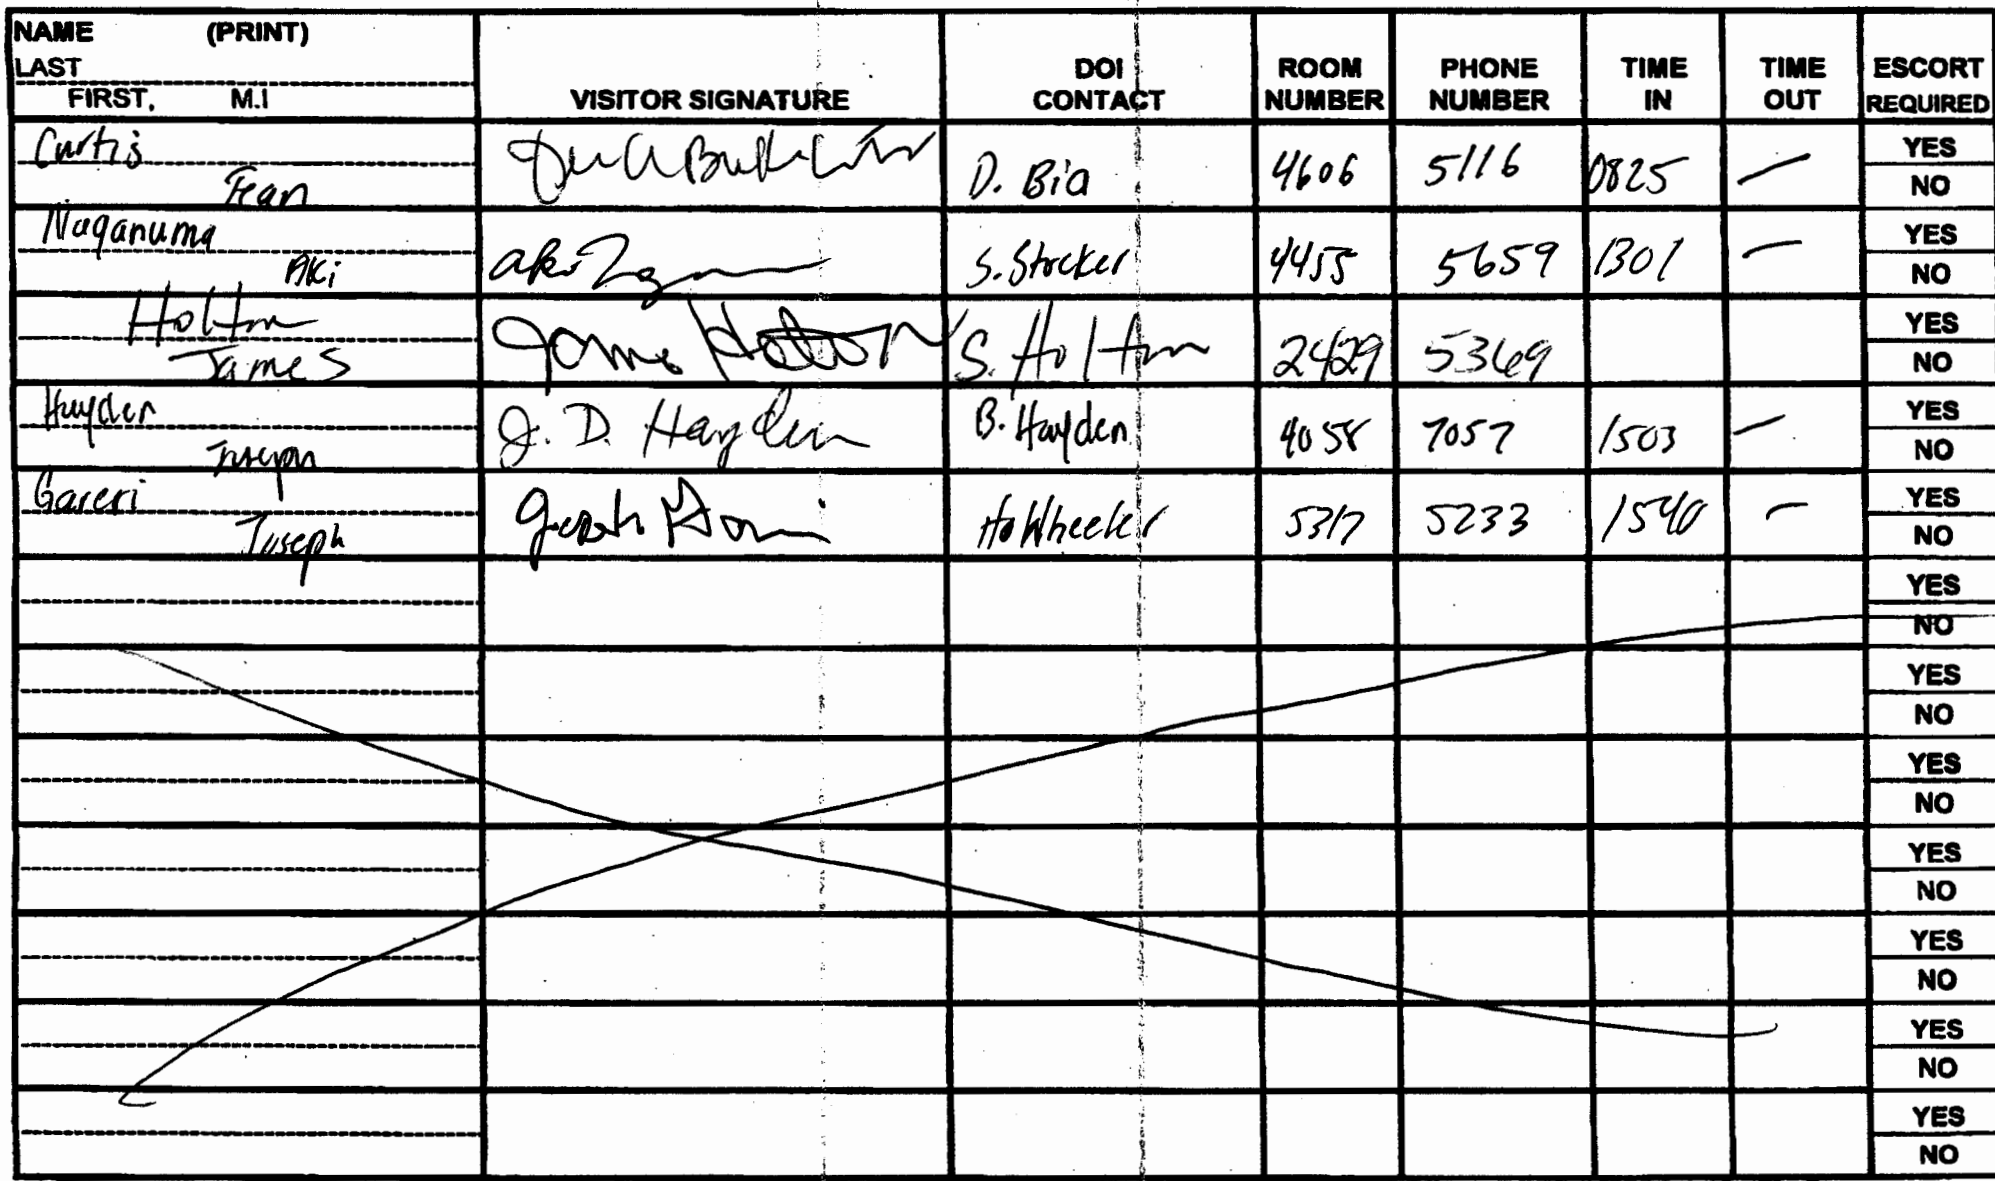 NAME (PRINT)
LAST
FIRST, M.I
VISITOR SIGNATURE
DOI
CONTACT
ROOM
NUMBER
PHONE
NUMBER
TIME
IN
TIME
OUT
ESCORT
REQUIRED
Curtis
D. Bia 4606 5116 0825 —
YES
NO
Naganuma
Aki
Aki
4455 5659 1301 —
YES
NO
Holton
James
James Holton
S. Holton 2429 5369
YES
NO
Hayden
Joseph
J. D. Hayden
B. Hayden 4058 7057 1503 —
YES
NO
Gareri
Joseph
Joseph
Wheeler 5317 5233 1540 —
YES
NO
YES
NO
YES
NO
YES
NO
YES
NO
YES
NO
YES
NO
YES
NO